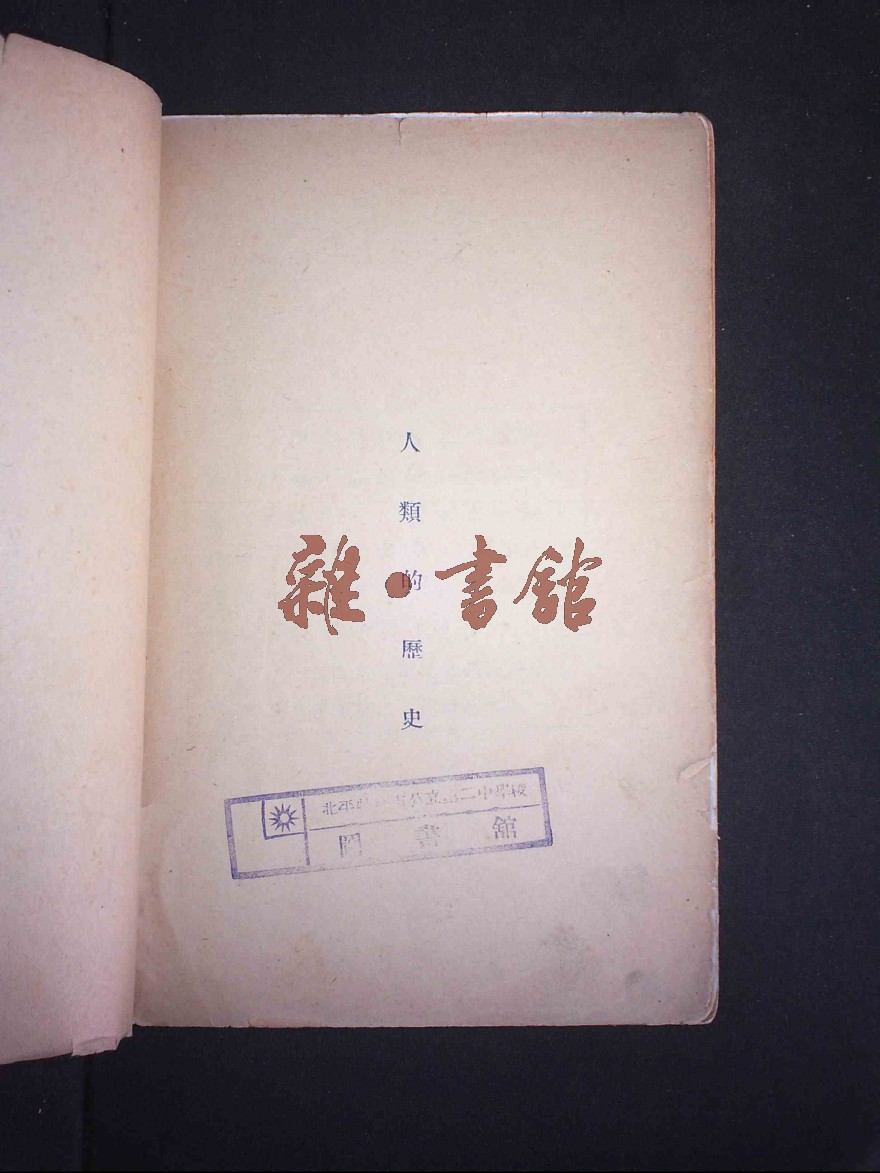 人類的歷史
雜·書館
北平 公立 二中學校
圖書館